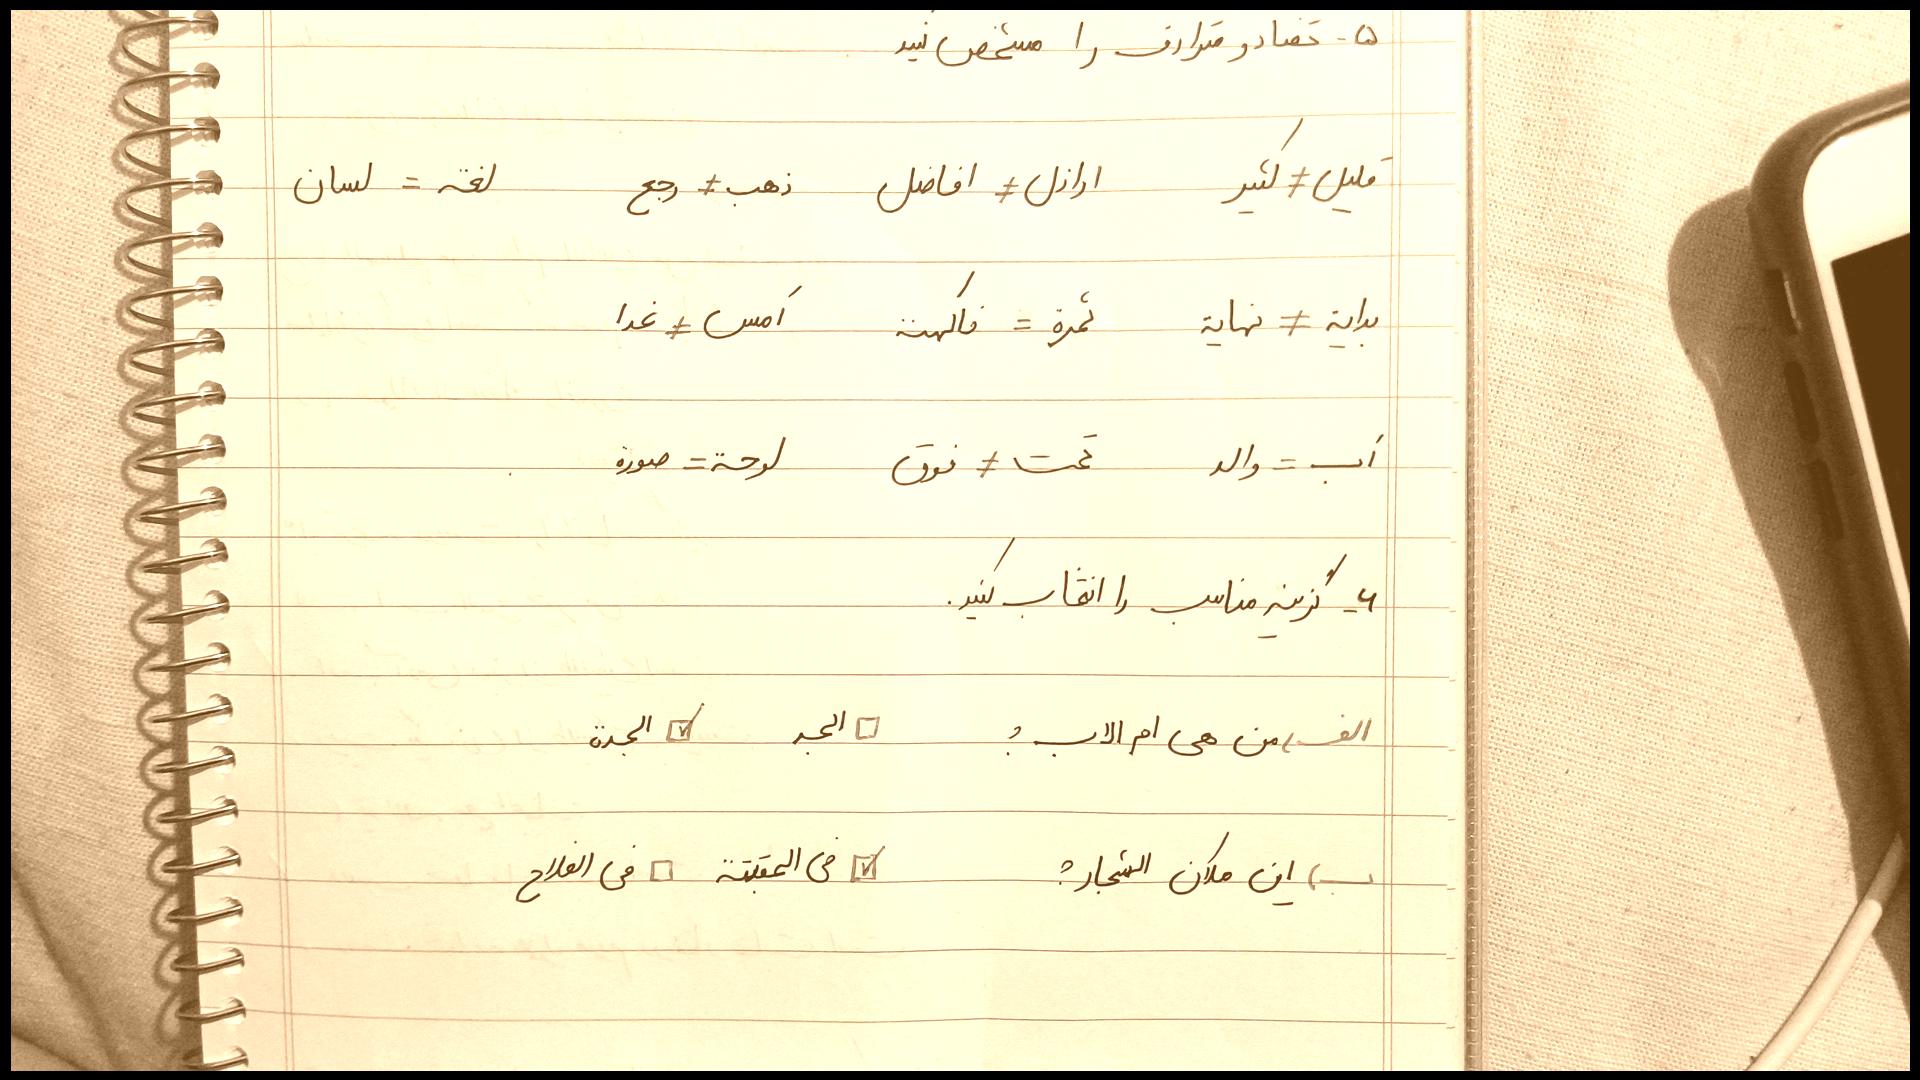 ۵- تضاد و مترادف را مشخص کنید
قلیل ≠ کثیر   اراذل ≠ افاضل   ذهب ≠ رجع   لغته = لسان
بدایة ≠ نهایة   ثمرة = فاکهته   أمس ≠ غدا
أب = والد   تحت ≠ فوق   لوحة = صورة
۶- گزینه مناسب را انتخاب کنید.
الف) من هی ام الاب؟   ☐ الجد   ☑ الجدة
ب) این مکان الشجار؟   ☑ فی   ☐ فی الفلاح